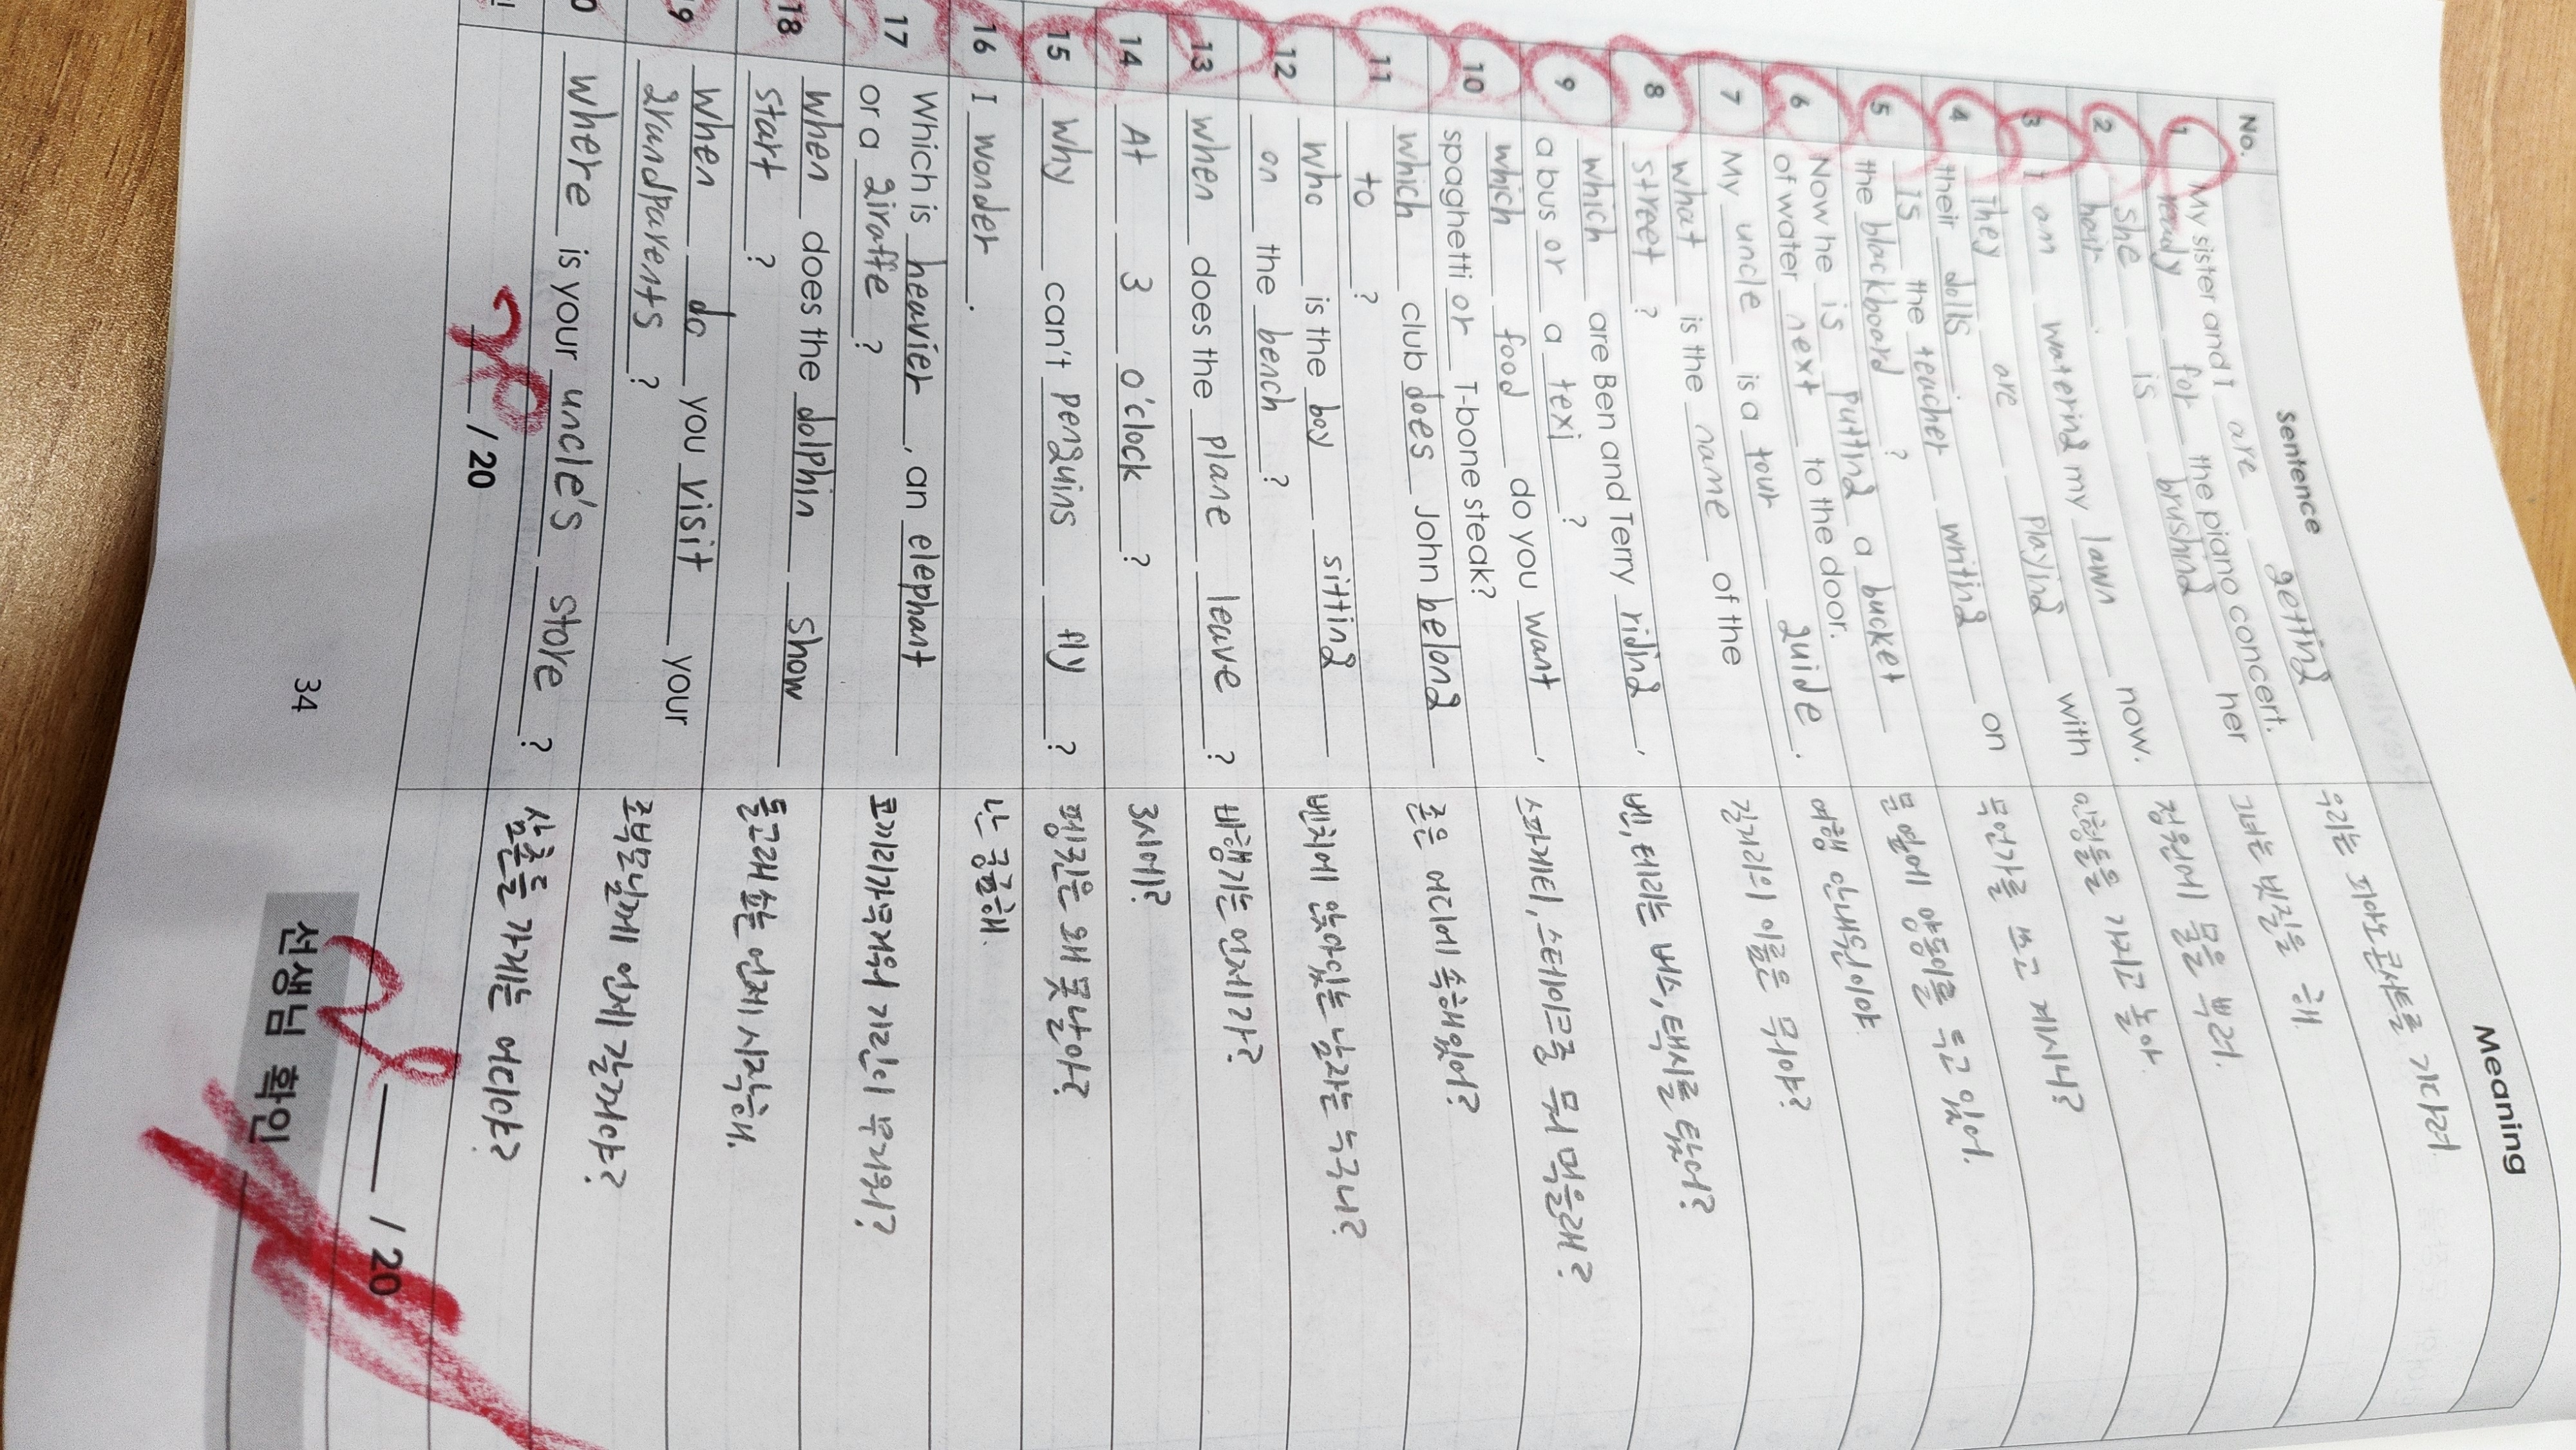 No. Sentence Meaning
1 My sister and I are getting 우리는 피아노 콘서트를 기다려
ready for the piano concert.
2 She is brushing her 그녀는 빗질을 해.
hair.
3 I am watering my lawn now. 정원에 물을 뿌려.
4 They are playing with 인형들을 가지고 놀아.
their dolls.
5 Is the teacher writing on 무언가를 쓰고 계시나?
the blackboard ?
6 Now he is putting a bucket 문 옆에 양동이를 두고 있어.
of water next to the door.
7 My uncle is a tour guide. 여행 안내원이야.
8 what is the name of the 길거리의 이름은 뭐야?
street ?
9 which are Ben and Terry riding, 벤, 터리는 버스, 택시를 탔어?
a bus or a texi ?
10 which food do you want, 스파게티, 스테이크중 뭐 먹을래?
spaghetti or T-bone steak?
11 which club does John belong 존은 어디에 속해있어?
to ?
12 Who is the boy sitting 벤치에 앉아있는 남자는 누구니?
on the bench ?
13 when does the plane leave ? 비행기는 언제가?
14 At 3 o'clock ? 3시에?
15 why can't penguins fly ? 펭귄은 왜 못 날아?
16 I wonder. 난 궁금해.
17 Which is heavier, an elephant 코끼리가 무거워 기린이 무거워?
or a giraffe ?
18 when does the dolphin show 돌고래 쇼는 언제 시작해.
start ?
9 When do you visit your 조부모님께 언제 갈거야?
grandparents ?
0 where is your uncle's store ? 삼촌들 가게는 어디야?
20 / 20 / 20
34
선생님 확인